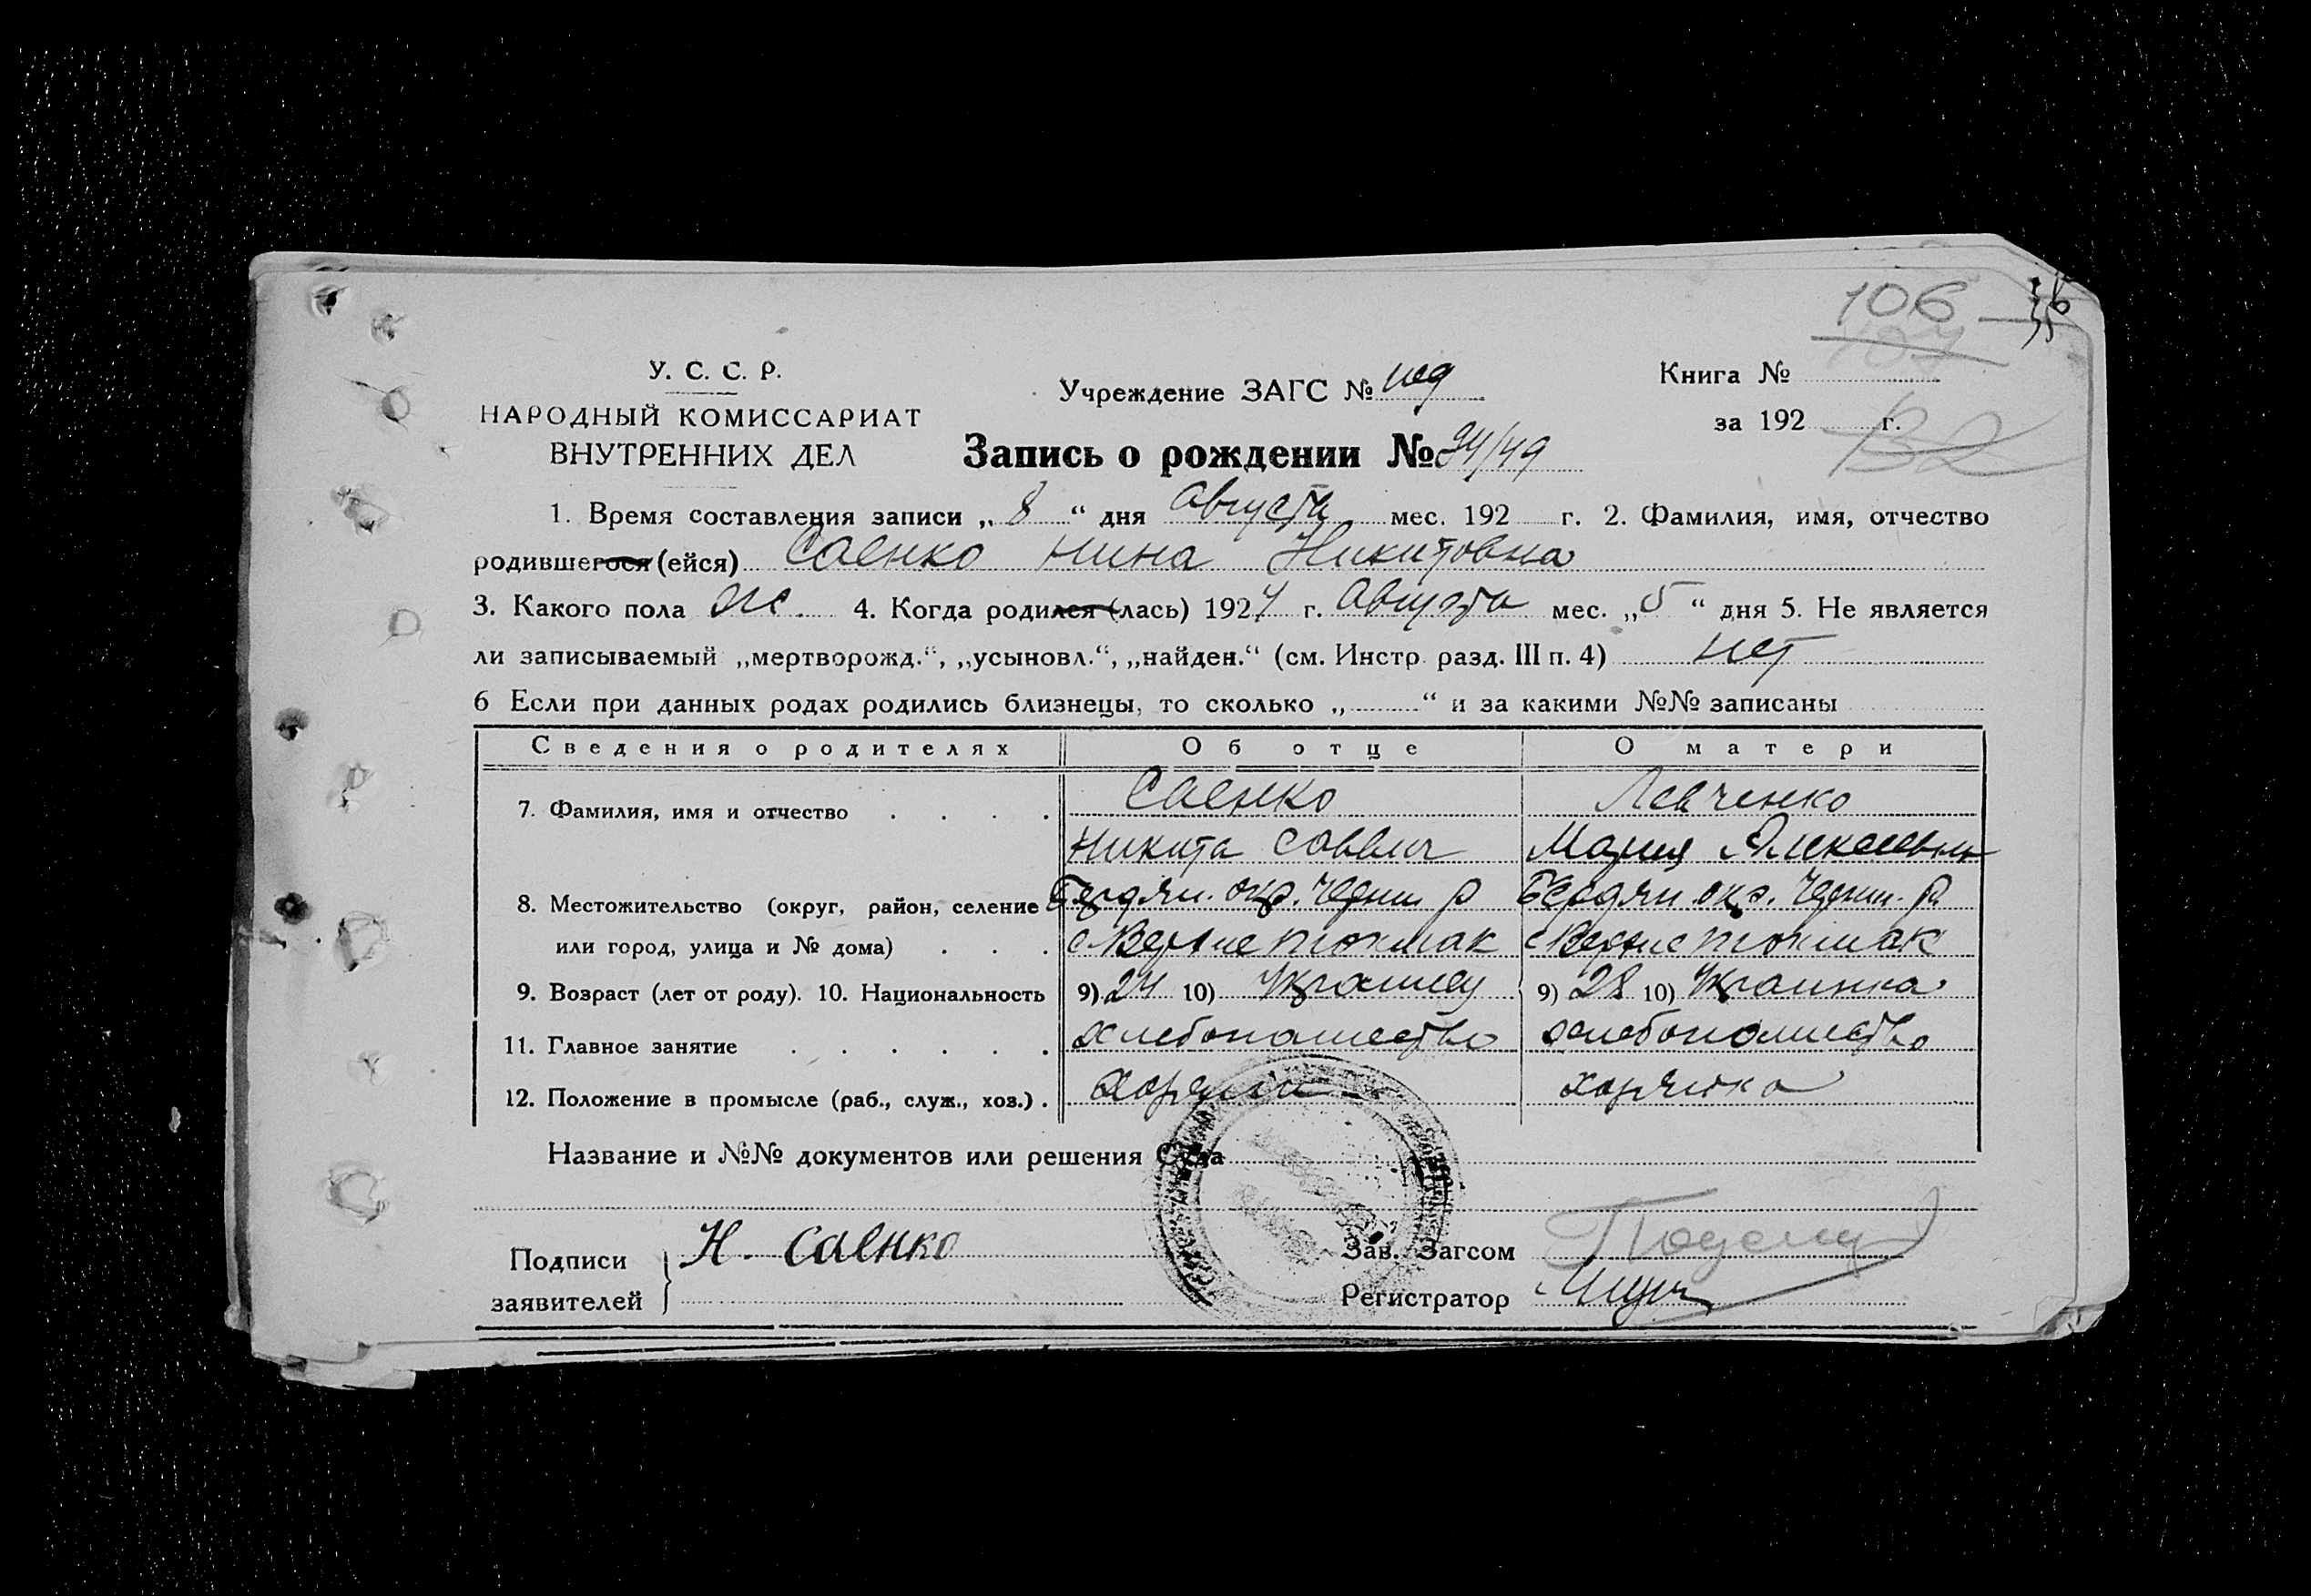 106
У. С. С. Р.
НАРОДНЫЙ КОМИССАРИАТ
ВНУТРЕННИХ ДЕЛ
Учреждение ЗАГС №
Книга №
за 192 г.
Запись о рождении № 94/49
1. Время составления записи „ 8 “ дня Августа мес. 192 г. 2. Фамилия, имя, отчество
родившегося (ейся) Саенко Нина Никитовна
3. Какого пола ж. 4. Когда родился (лась) 1924 г. Августа мес. „ 5 “ дня 5. Не является
ли записываемый „мертворожд.“, „усыновл.“, „найден.“ (см. Инстр. разд. III п. 4) нет
6 Если при данных родах родились близнецы, то сколько „ “ и за какими №№ записаны
Сведения о родителях Об отце О матери
7. Фамилия, имя и отчество Саенко Левченко
Никита Саввич Мария Алексеевна
8. Местожительство (округ, район, селение Бердян. окр. Черни. р Бердян. окр. Черни. р.
или город, улица и № дома) с Верхне Токмак с Верхне Токмак
9. Возраст (лет от роду). 10. Национальность 9) 24 10) Украинец 9) 28 10) Украинка
11. Главное занятие хлебопашество хлебопашество
12. Положение в промысле (раб., служ., хоз.) .
Название и №№ документов или решения Суда
Подписи заявителей Н. Саенко
Зав. Загсом
Регистратор